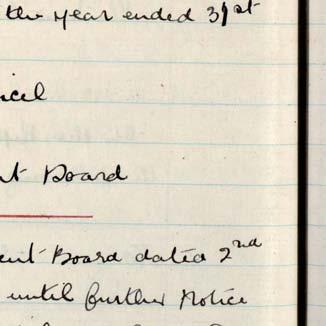 the year ended 31st
ncil
nt Board
ent Board dated 2nd
until further Notice